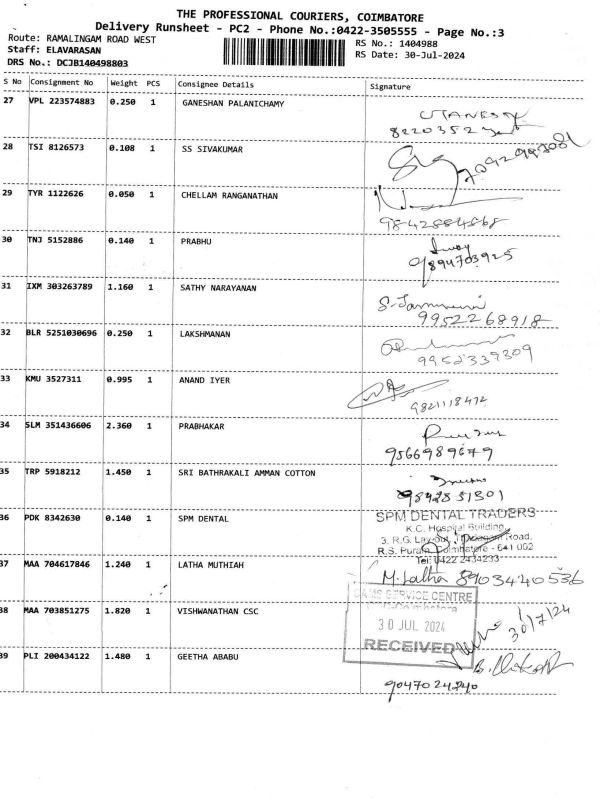 THE PROFESSIONAL COURIERS, COIMBATORE
Delivery Runsheet - PC2 - Phone No.:0422-3505555 - Page No.:3
Route: RAMALINGAM ROAD WEST
RS No.: 1404988
Staff: ELAVARASAN
RS Date: 30-Jul-2024
DRS No.: DCJB140498803
S No Consignment No Weight PCS Consignee Details Signature
27 VPL 223574883 0.250 1 GANESHAN PALANICHAMY
28 TSI 8126573 0.108 1 SS SIVAKUMAR
29 TYR 1122626 0.050 1 CHELLAM RANGANATHAN
30 TNJ 5152886 0.140 1 PRABHU
9894703925
31 IXM 303263789 1.160 1 SATHY NARAYANAN
9952268918
32 BLR 5251030696 0.250 1 LAKSHMANAN
9952339309
33 KMU 3527311 0.995 1 ANAND IYER
9821118472
34 SLM 351436606 2.360 1 PRABHAKAR
9566989679
35 TRP 5918212 1.450 1 SRI BATHRAKALI AMMAN COTTON
9842851301
36 PDK 8342630 0.140 1 SPM DENTAL
SPM DENTAL TRADERS
K.C. Hospital Building,
3, R.G. Layout, Road,
R.S. Puram, Coimbatore - 641 002
Tel: 0422 2434233
37 MAA 704617846 1.240 1 LATHA MUTHIAH
M. Latha 8903440536
38 MAA 703851275 1.820 1 VISHWANATHAN CSC
CAMS SERVICE CENTRE
Coimbatore
30 JUL 2024
RECEIVED
30/7/24
39 PLI 200434122 1.480 1 GEETHA ABABU
9047024240